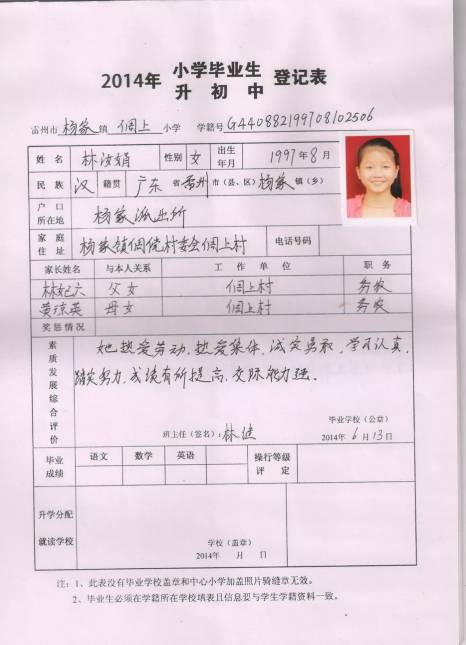 2014年 小学毕业生 登记表
升初中
雷州市 杨家 镇 侗上 小学 学籍号 G440882199708102506
姓名 林汝娟 性别 女 出生年月 1997年8月
民族 汉 籍贯 广东 省 雷州 市(县、区) 杨家 镇(乡)
户口所在地 杨家派出所
家庭住址 杨家镇侗侥村委会侗上村 电话号码
家长姓名 与本人关系 工作单位 职务
林妃六 父女 侗上村 务农
黄琼英 母女 侗上村 务农
奖惩情况
素质发展综合评价
她热爱劳动,热爱集体,诚实勇敢,学习认真,
踏实努力,成绩有所提高,交际能力强.
毕业学校(公章)
班主任(签名): 林健 2014年 6月13日
毕业成绩 语文 数学 英语 操行等级评定
升学分配就读学校
学校(盖章)
2014年 月 日
注:1、此表没有毕业学校盖章和中心小学加盖照片骑缝章无效。
2、毕业生必须在学籍所在学校填表且信息要与学生学籍资料一致。